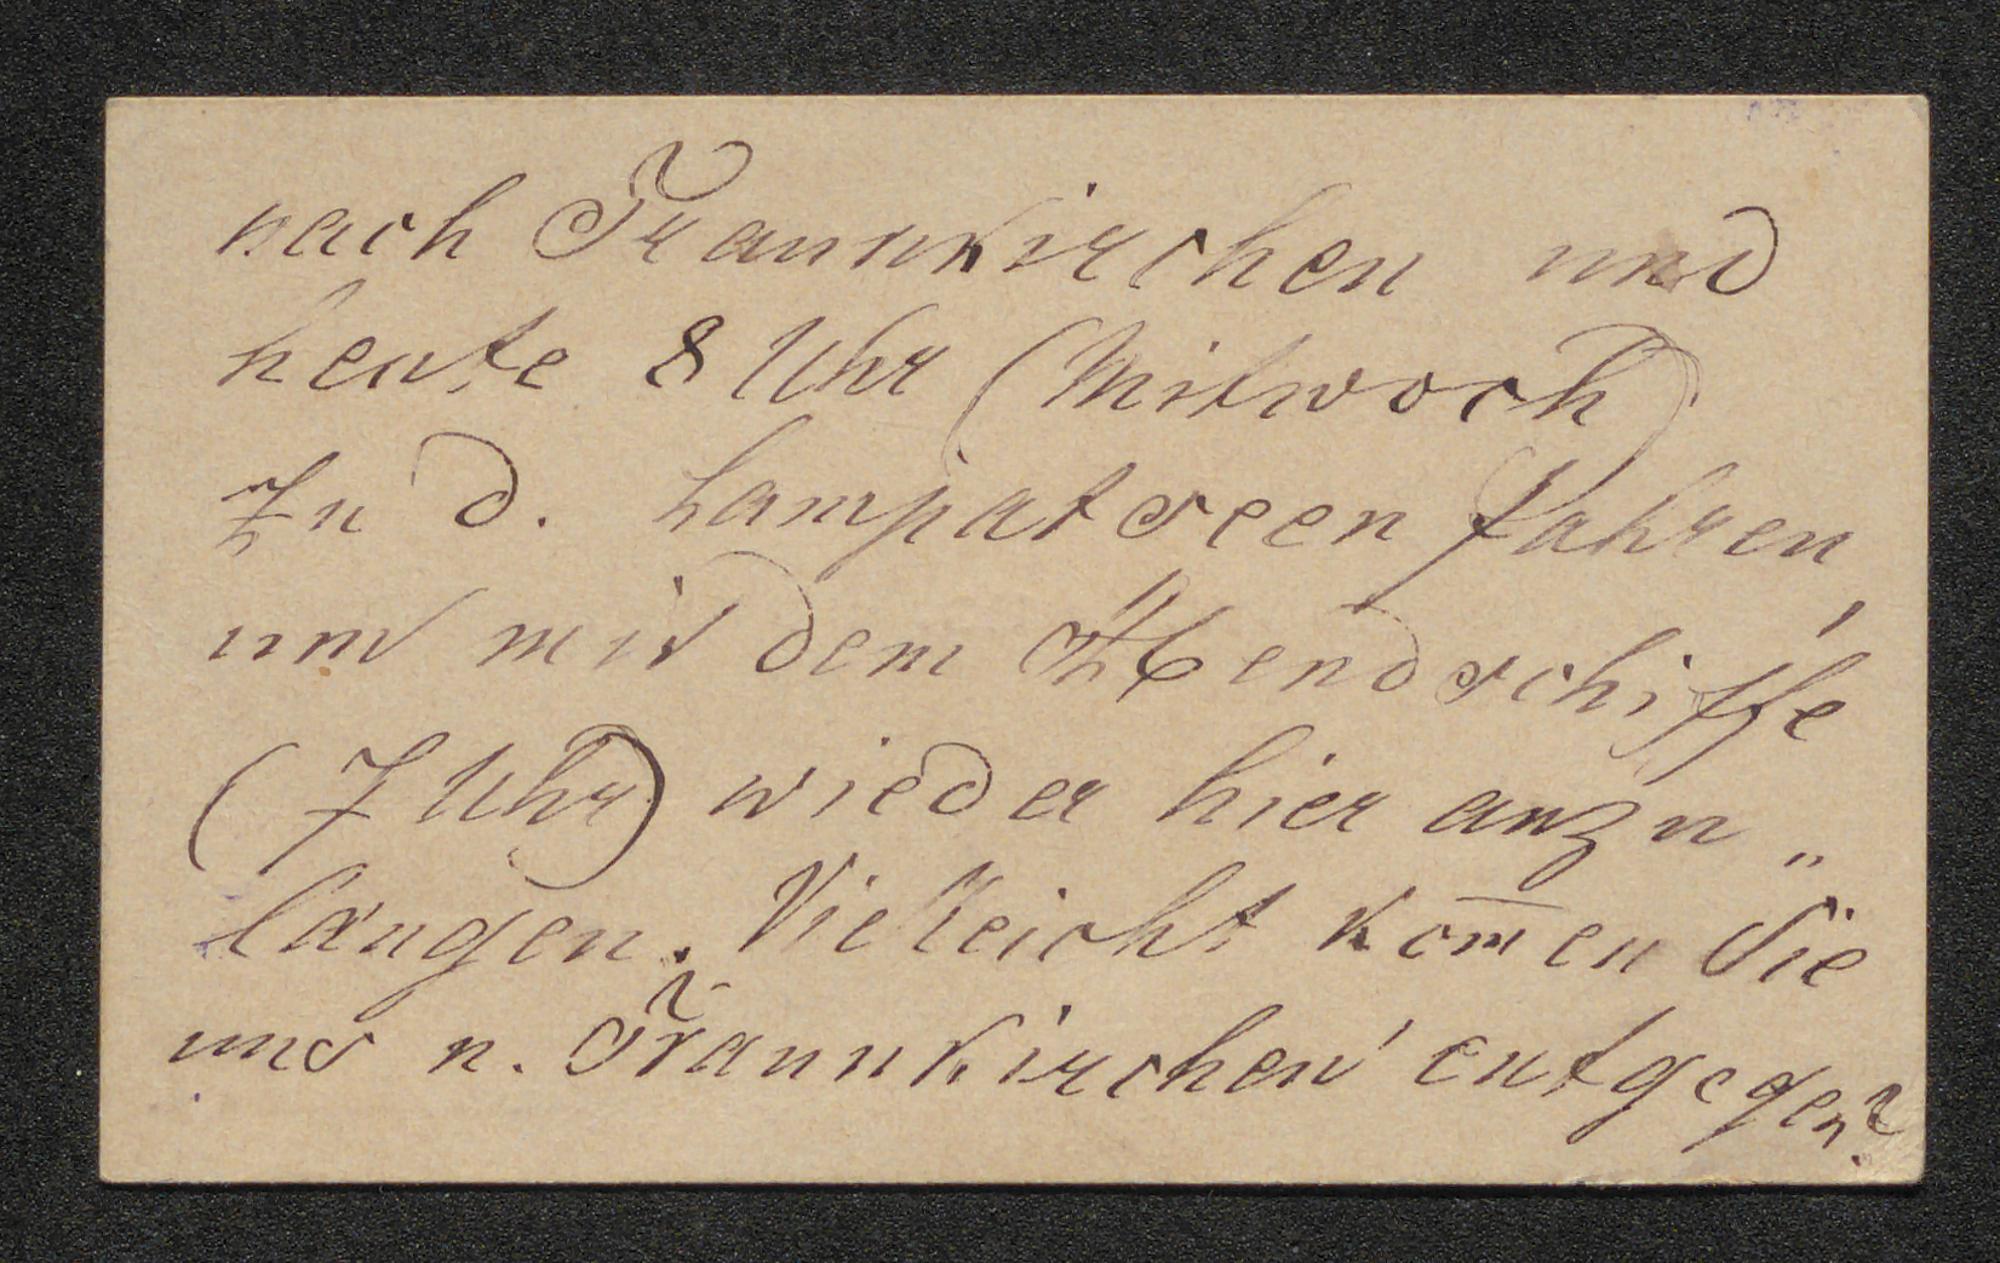 nach Traunkirchen und
heute 8 Uhr (Mitwoch)
zu d. Lampatseen fahren,
um mit dem Abendschiffe
(7 Uhr) wieder hier anzu„
langen. Vielleicht kom̅en Sie
uns n. Traunkirchen entgegen?